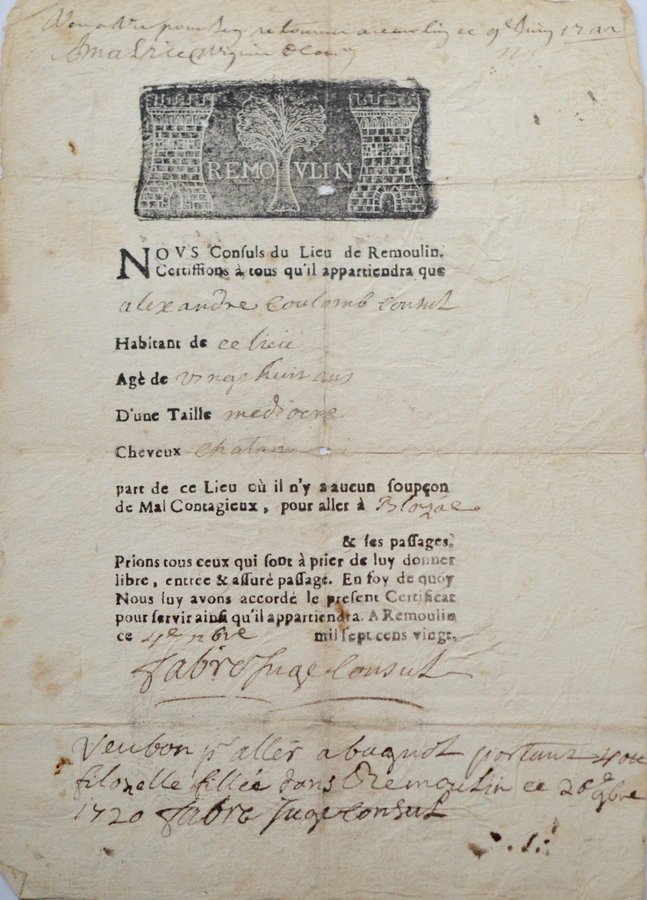 retourner a remoulin ce 9e
REMOVLIN
NOVS Consuls du Lieu de Remoulin.
Certiffions à tous qu'il appartiendra que
alexandre coulomb consul
Habitant de ce lieu
Agè de vingt huit ans
D'une Taille mediocre
Cheveux chatain
part de ce Lieu où il n'y a aucun soupçon
de Mal Contagieux, pour aller à
& ses passages.
Prions tous ceux qui sont à prier de luy donner
libre, entrée & assuré passage. En foy de quoy
Nous luy avons accordé le present Certificat
pour servir ainsi qu'il appartiendra. A Remoulin
ce mil sept cens vingt.
fabre Juge Consul
Veu bon pr aller a portant
filozelle fillée dans Remoulin ce
1720 fabre Juge consul